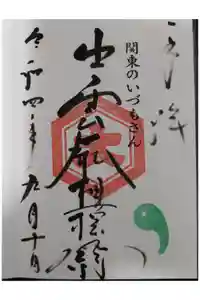 関東のいづもさん
出雲大社相模分祠
令和四年九月十日